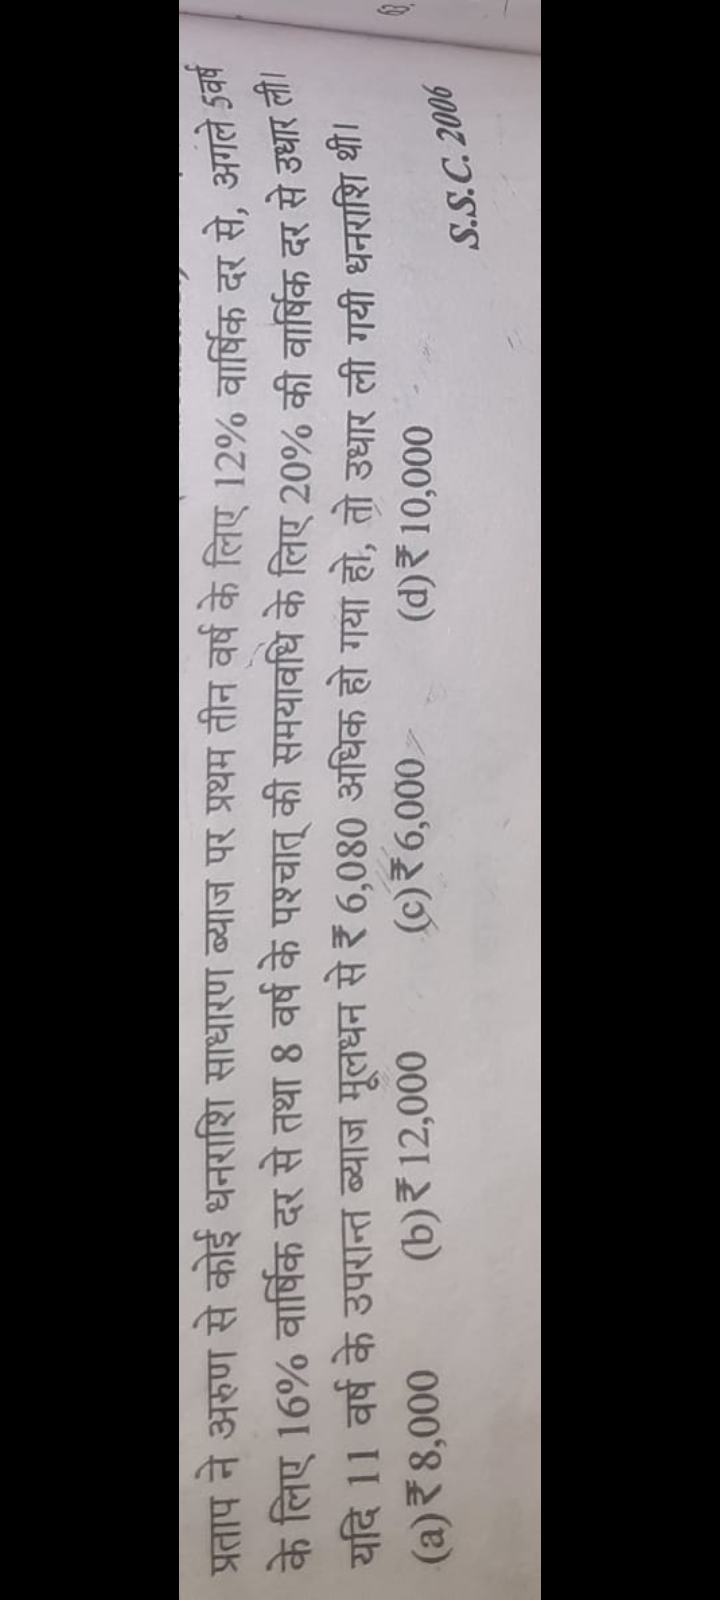 प्रताप ने अरुण से कोई धनराशि साधारण ब्याज पर प्रथम तीन वर्ष के लिए 12% वार्षिक दर से, अगले 5वर्ष
के लिए 16% वार्षिक दर से तथा 8 वर्ष के पश्चात् की समयावधि के लिए 20% की वार्षिक दर से उधार ली।
यदि 11 वर्ष के उपरान्त ब्याज मूलधन से ₹ 6,080 अधिक हो गया हो, तो उधार ली गयी धनराशि थी।
(a) ₹ 8,000 (b) ₹ 12,000 (c) ₹ 6,000 (d) ₹ 10,000
S.S.C. 2006